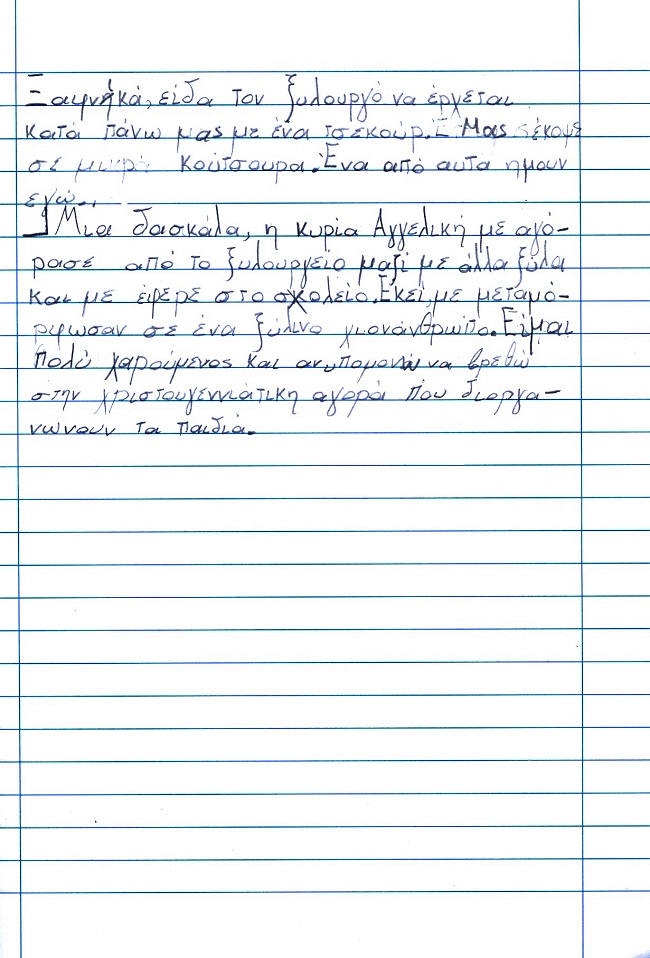 Ξαφνικά, είδα τον ξυλουργό να έρχεται
κατά πάνω μας με ένα τσεκούρ. Μας έκοψε
σε μικρά κούτσουρα. Ένα από αυτα ημουν
εγώ..
Μια δασκάλα, η κυρία Αγγελική με αγό-
ρασε από το ξυλουργείο μαζί με άλλα ξύλα
και με έφερε στο σχολείο. Εκεί, με μεταμό-
ρφωσαν σε ένα ξύλινο χιονάνθρωπο. Είμαι
πολύ χαρούμενος και ανυπομονώ να βρεθώ
στην χριστουγεννιάτικη αγορά που διοργα-
νώνουν τα παιδιά.